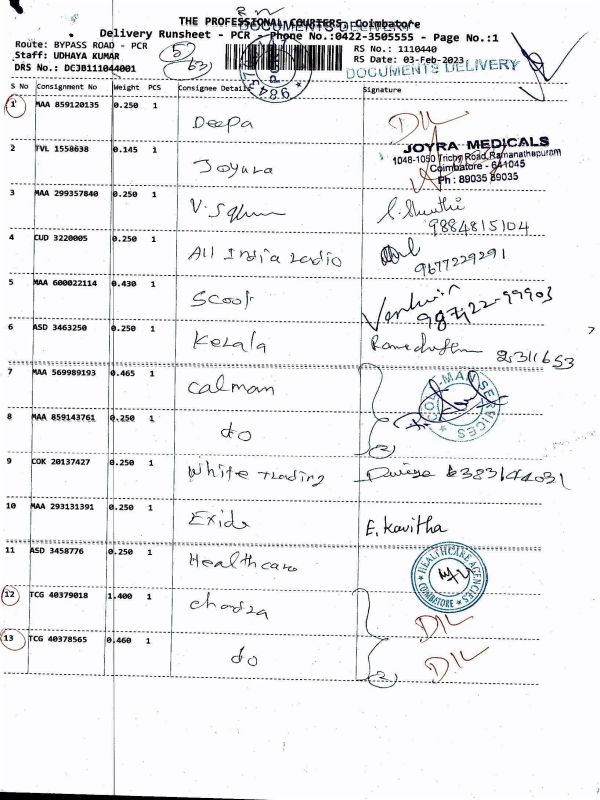 THE PROFESSIONAL COURIERS, Coimbatore
DOCUMENTS DELIVERY
Delivery Runsheet - PCR - Phone No.:0422-3505555 - Page No.:1
Route: BYPASS ROAD - PCR
Staff: UDHAYA KUMAR
DRS No.: DCJB111044001
RS No.: 1110440
RS Date: 03-Feb-2023
DOCUMENTS DELIVERY
S No Consignment No Weight PCS Consignee Details Signature
1 MAA 859120135 0.250 1 Deepa D/L
2 TVL 1558638 0.145 1 Joyura
JOYRA MEDICALS
1048-1050 Trichy Road, Ramanathapuram
Coimbatore - 641045
Ph : 89035 89035
3 MAA 299357840 0.250 1
9884815104
4 CUD 3220005 0.250 1 All India radio
9677229291
5 MAA 600022114 0.430 1 Scoot
98422-99903
6 ASD 3463250 0.250 1 Kerala
2311653
7 MAA 569989193 0.465 1 Calman
COOL-MAN SERVICES
8 MAA 859143761 0.250 1 do
(2)
9 COK 20137427 0.250 1 White Trading
6383144031
10 MAA 293131391 0.250 1 Exide E. Kavitha
11 ASD 3458776 0.250 1 Healthcare
HEALTHCARE AGENCIES COIMBATORE
12 TCG 40379018 1.400 1 chandra D/L
13 TCG 40378565 0.460 1 do D/L
(2)